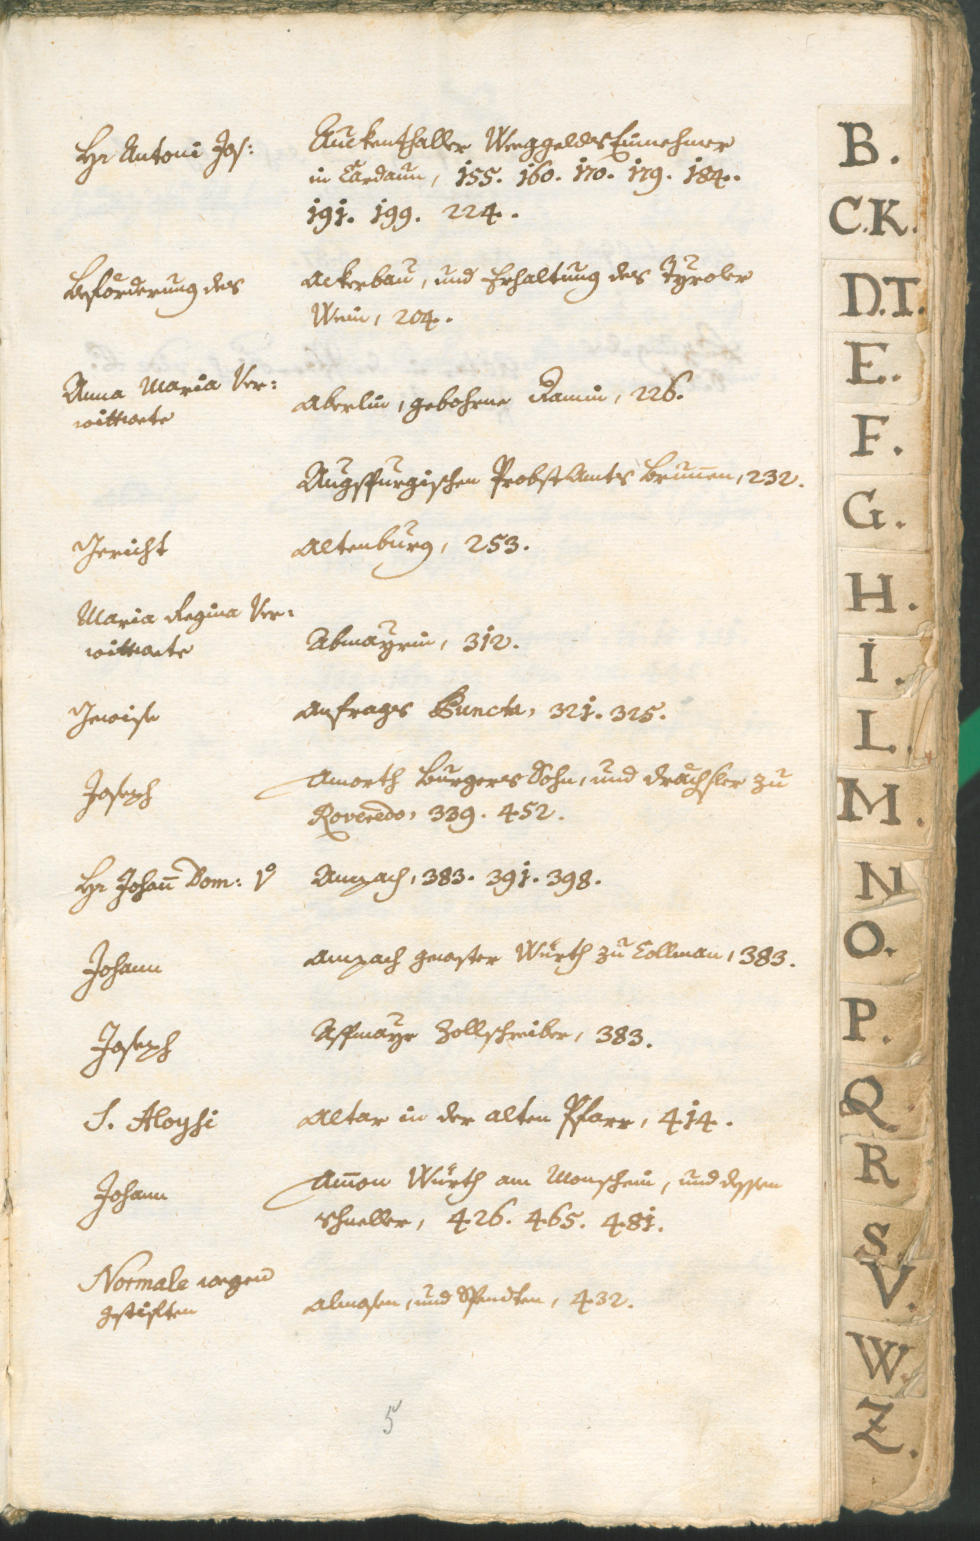 Hr Antoni Jos: Auckenthaller Weeggelds Einnehmer
in Cardaun, 155. 160. 170. 179. 184.
191. 199. 224.
Beförderung des Ackerbau, und Erhaltung des Tyroler
Wein, 204.
Anna Maria Ver=
wittwete Aberlin, gebohrne Ramin, 226.
Augspurgischen Probst Amts Brunnen, 232.
Gericht Altenburg, 253.
Maria Regina Ver=
wittwete Abmayrin, 312.
Gewisse Anfrags Puncta, 321. 325.
Joseph Amorth Burgers Sohn, und Drächsler zu
Roveredo, 339. 452.
Hr Johan̄ Dom: Amzach, 383. 391. 398.
Johann Amzach gewester Würth zu Collman, 383.
Joseph Assmayr Zollschreiber, 383.
S. Aloysi Altar in der alten Pfarr, 414.
Johann Am̄on Würth am Monschein, und dessen
Schneller, 426. 465. 481.
Normale wegen
gestiften Almosen, und Spendten, 432.
5
B.
C.K.
D.T.
E.
F.
G.
H.
I.
L.
M.
N
O.
P.
Q
R
S.
V.
W.
Z.